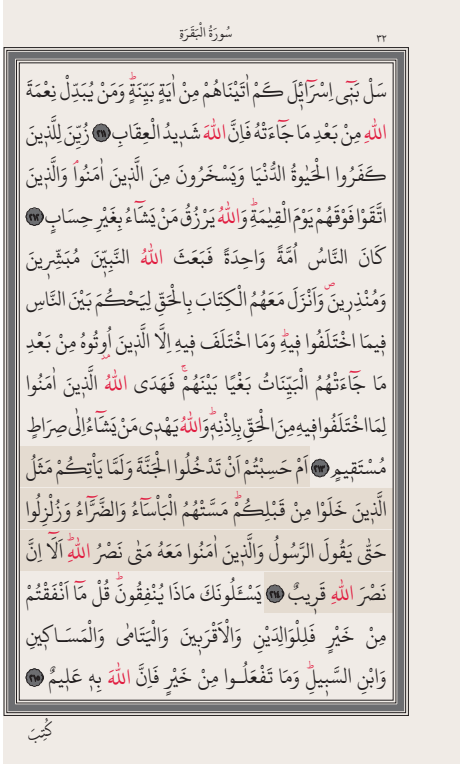 سُورَةُ الْبَقَرَةِ ٣٢
سَلْ بَنٖٓي اِسْرَٓائٖلَ كَمْ اٰتَيْنَاهُمْ مِنْ اٰيَةٍ بَيِّنَةٍؕ وَمَنْ يُبَدِّلْ نِعْمَةَ
اللّٰهِ مِنْ بَعْدِ مَا جَٓاءَتْهُ فَاِنَّ اللّٰهَ شَدٖيدُ الْعِقَابِ ﴿٢١١﴾ زُيِّنَ لِلَّذٖينَ
كَفَرُوا الْحَيٰوةُ الدُّنْيَا وَيَسْخَرُونَ مِنَ الَّذٖينَ اٰمَنُواۘ وَالَّذٖينَ
اتَّقَوْا فَوْقَهُمْ يَوْمَ الْقِيٰمَةِؕ وَاللّٰهُ يَرْزُقُ مَنْ يَشَٓاءُ بِغَيْرِ حِسَابٍ ﴿٢١٢﴾
كَانَ النَّاسُ اُمَّةً وَاحِدَةً فَبَعَثَ اللّٰهُ النَّبِيّٖنَ مُبَشِّرٖينَ
وَمُنْذِرٖينَࣕ وَاَنْزَلَ مَعَهُمُ الْكِتَابَ بِالْحَقِّ لِيَحْكُمَ بَيْنَ النَّاسِ
فٖيمَا اخْتَلَفُوا فٖيهِؕ وَمَا اخْتَلَفَ فٖيهِ اِلَّا الَّذٖينَ اُو۫تُوهُ مِنْ بَعْدِ
مَا جَٓاءَتْهُمُ الْبَيِّنَاتُ بَغْيًا بَيْنَهُمْۚ فَهَدَى اللّٰهُ الَّذٖينَ اٰمَنُوا
لِمَا اخْتَلَفُوا فٖيهِ مِنَ الْحَقِّ بِاِذْنِهٖؕ وَاللّٰهُ يَهْدٖي مَنْ يَشَٓاءُ اِلٰى صِرَاطٍ
مُسْتَقٖيمٍ ﴿٢١٣﴾ اَمْ حَسِبْتُمْ اَنْ تَدْخُلُوا الْجَنَّةَ وَلَمَّا يَاْتِكُمْ مَثَلُ
الَّذٖينَ خَلَوْا مِنْ قَبْلِكُمْؕ مَسَّتْهُمُ الْبَاْسَٓاءُ وَالضَّرَّٓاءُ وَزُلْزِلُوا
حَتّٰى يَقُولَ الرَّسُولُ وَالَّذٖينَ اٰمَنُوا مَعَهُ مَتٰى نَصْرُ اللّٰهِؕ اَلَٓا اِنَّ
نَصْرَ اللّٰهِ قَرٖيبٌ ﴿٢١٤﴾ يَسْـَٔلُونَكَ مَاذَا يُنْفِقُونَؕ قُلْ مَٓا اَنْفَقْتُمْ
مِنْ خَيْرٍ فَلِلْوَالِدَيْنِ وَالْاَقْرَبٖينَ وَالْيَتَامٰى وَالْمَسَاكٖينِ
وَابْنِ السَّبٖيلِؕ وَمَا تَفْعَلُوا مِنْ خَيْرٍ فَاِنَّ اللّٰهَ بِهٖ عَلٖيمٌ ﴿٢١٥﴾
كُتِبَ